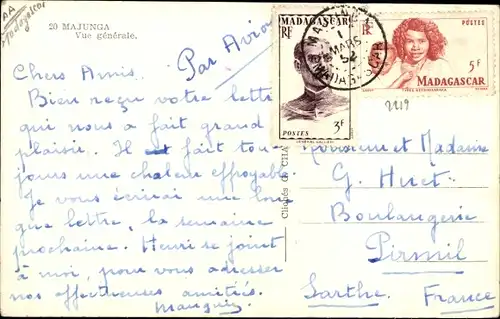 AA
Madagascar
20 MAJUNGA
Vue générale.
Par Avion
Chers Amis.
Bien reçu votre lettre
qui nous a fait grand
plaisir. Il fait tou-
jours une chaleur effroyable.
Je vous écrirai une lon-
gue lettre, la semaine
prochaine. Henri se joint
à moi, pour vous adresser
nos affectueuses amitiés.
MADAGASCAR
RF
POSTES 3F
GÉNÉRAL GALLIÉNI
1
MARS
52
MADAGASCAR
POSTES
5F
MADAGASCAR
2219
Clichés de CHA
Monsieur et Madame
G. Huet
Boulangerie
Pirmil
Sarthe. France